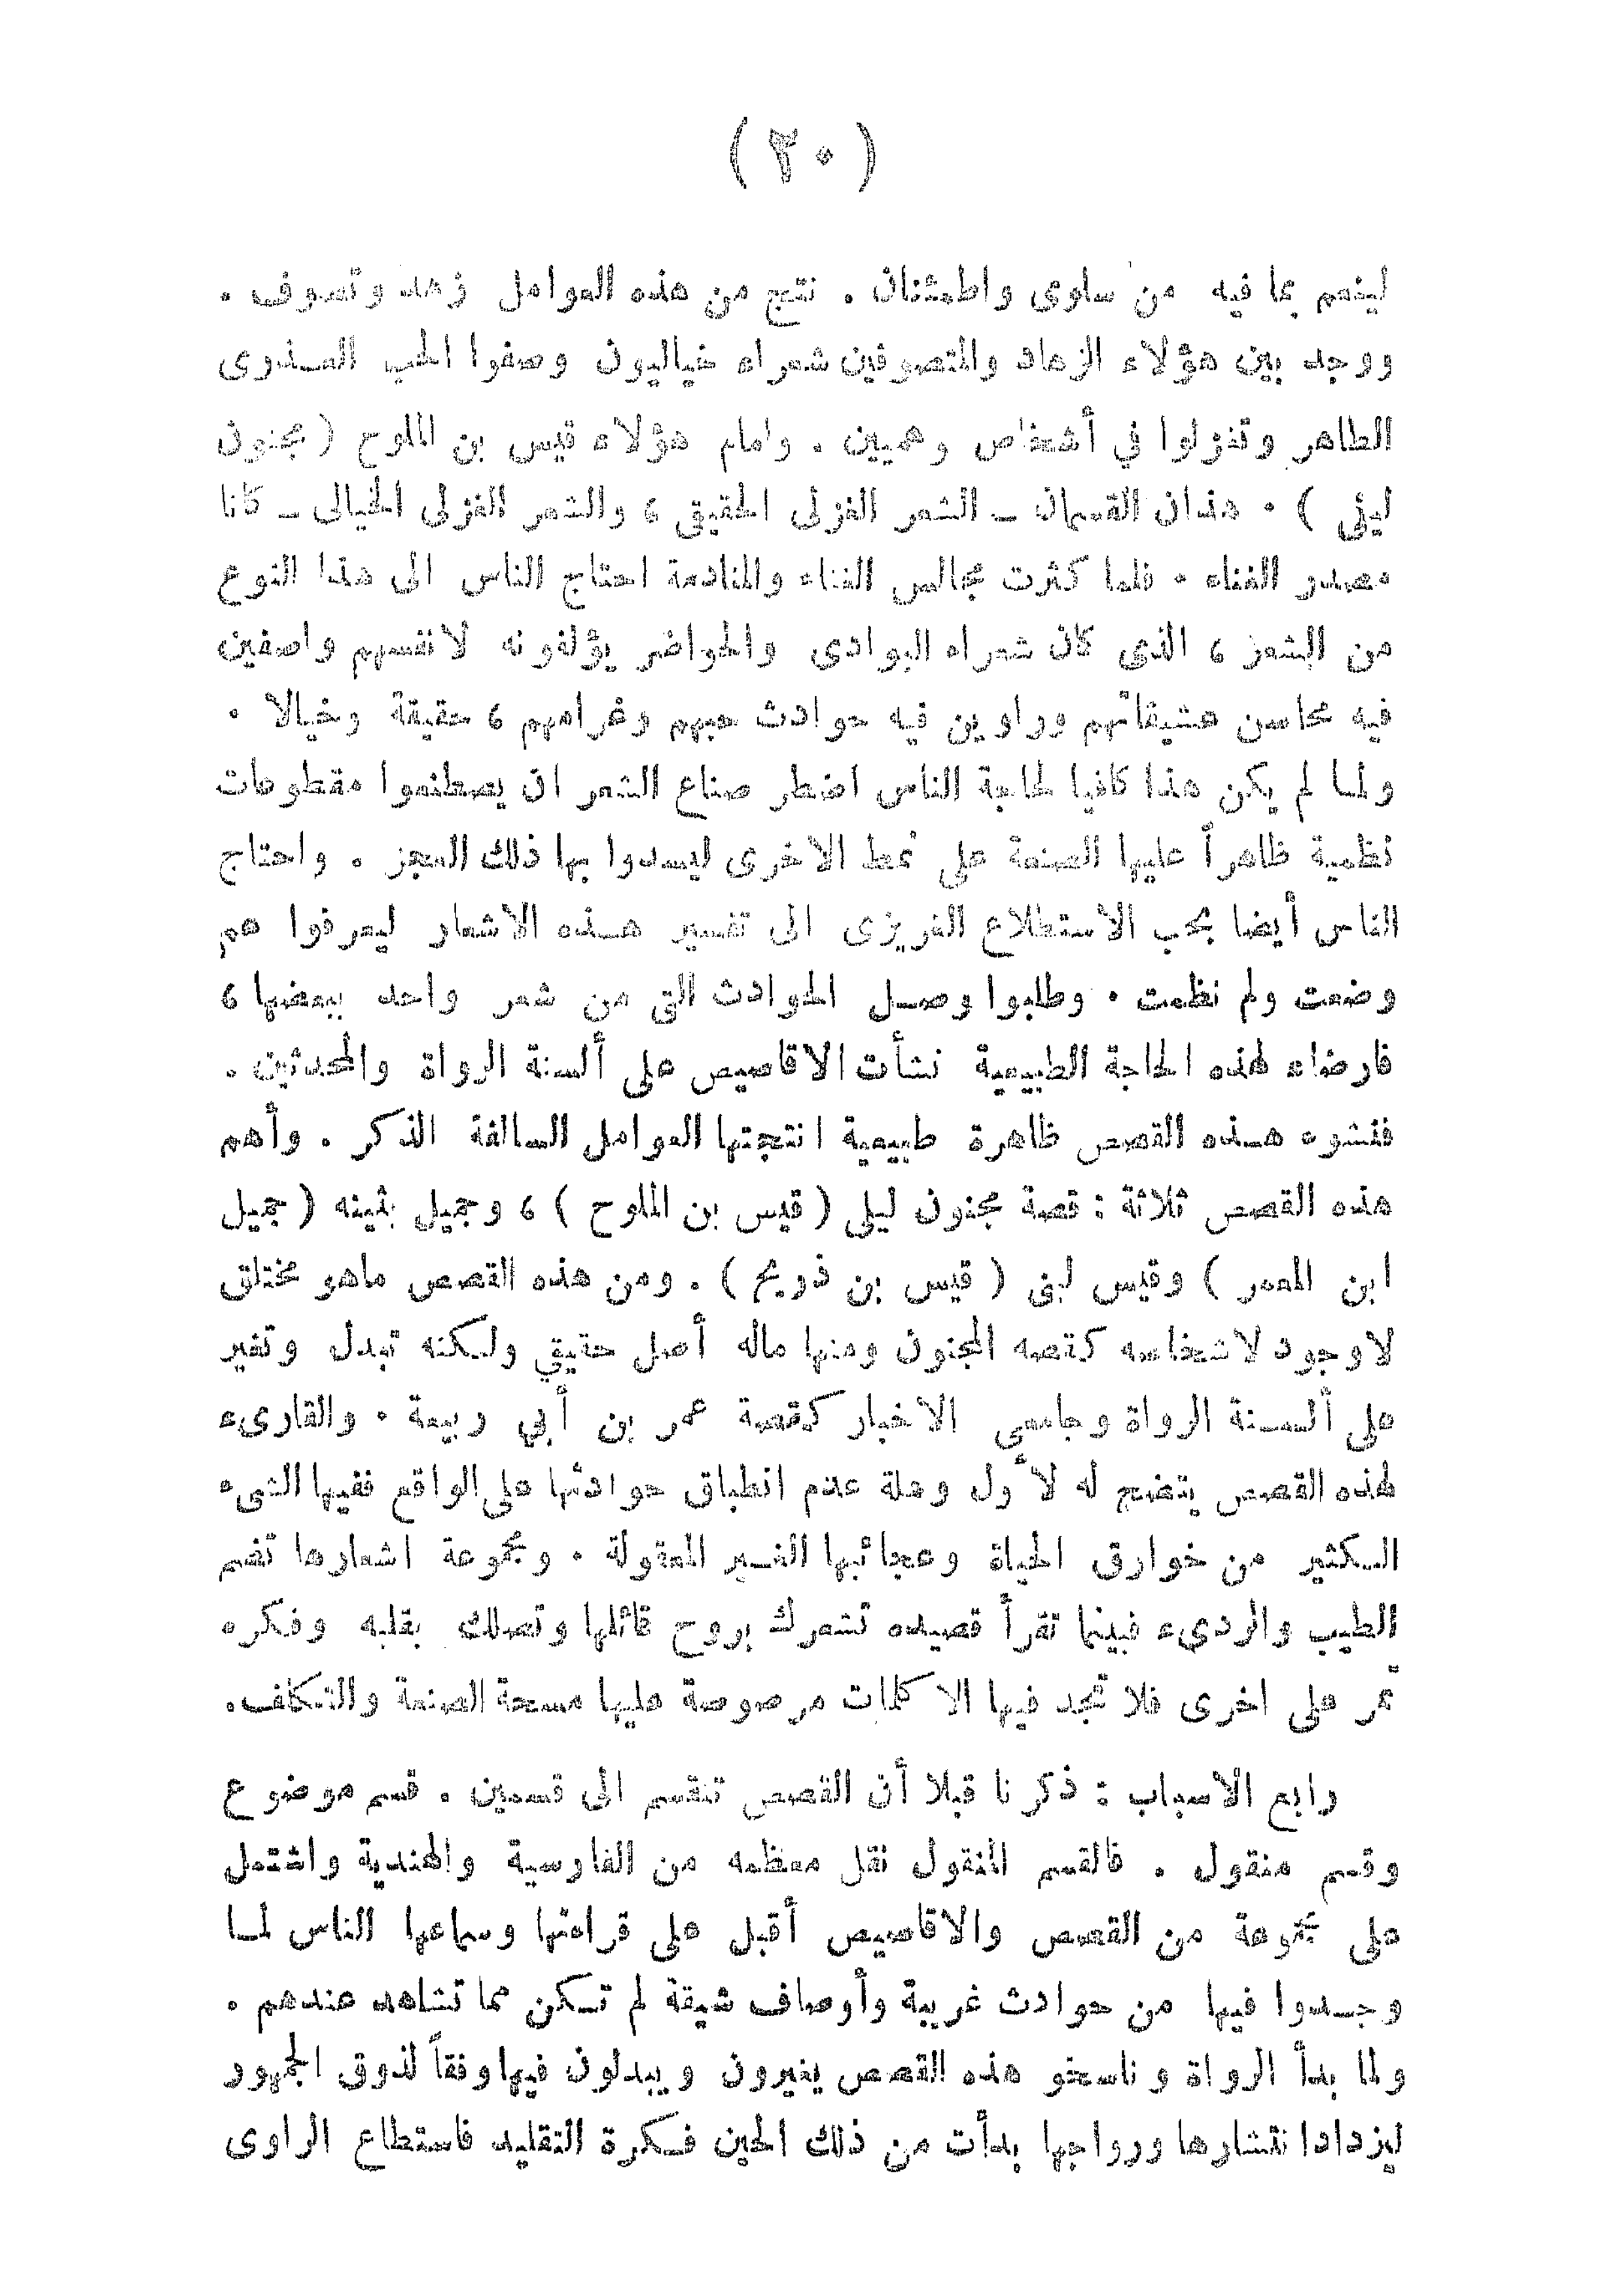 ( ٣٠ )
لينعم بما فيه من سلوى واطمئنان . نتج من هذه العوامل زهد وتصوف .
ووجد بين هؤلاء الزهاد والمتصوفين شعراء خياليون وصفوا الحب العـذرى
الطاهر وتغزلوا في أشخاص وهميين . وامام هؤلاء قيس بن الملوح ( مجنون
ليلى ) . هذان القسمان ـ الشعر الغزلى الحقيقى ، والشعر الغزلى الخيالى ـ كانا
مصدر الغناء . فلما كثرت مجالس الغناء والمنادمة احتاج الناس الى هذا النوع
من الشعر ، الذى كان شعراء البوادى والحواضر يؤلفونه لانفسهم واصفين
فيه محاسن عشيقاتهم وراوين فيه حوادث حبهم وغرامهم ، حقيقة وخيالا .
ولمـا لم يكن هذا كافيا لحاجة الناس اضطر صناع الشعر ان يصطنعوا مقطوعات
نظمية ظاهراً عليها الصنعة على نمط الاخرى ليسدوا بها ذلك العجز . واحتاج
الناس أيضا بحب الاستطلاع الغريزى الى تفسير هـذه الاشعار ليعرفوا هم
وضعت ولم نظمت . وطلبوا وصـل الحوادث التى من شعر واحد ببعضها ،
فارضاء لهذه الحاجة الطبيعية نشأت الاقاصيص على ألسنة الرواة والمحدثين .
فنشوء هـذه القصص ظاهرة طبيعية انتجتها العوامل السالفة الذكر . وأهم
هذه القصص ثلاثة : قصة مجنون ليلى ( قيس بن الملوح ) ، وجميل بثينه ( جميل
ابن المعمر ) وقيس لبنى ( قيس بن ذريح ) . ومن هذه القصص ماهو مختلق
لاوجود لاشخاصه كقصه المجنون ومنها ماله أصل حقيقي ولـكنه تبدل وتغير
على ألسـنة الرواة وجامعي الاخبار كقصة عمر بن أبي ربيعة . والقارىء
لهذه القصص يتضح له لأول وهلة عدم انطباق حوادثها على الواقع ففيها الشىء
الـكثير من خوارق الحياة وعجائبها الغـير المعقولة . ومجموعة اشعارها تضم
الطيب والردىء فبينما تقرأ قصيده تشعرك بروح قائلها وتصلك بقلبه وفكره
تمر على اخرى فلا تجد فيها الا كلمات مرصوصة عليها مسحة الصنعة والتـكلف.
رابع الاسباب : ذكرنا قبلا أن القصص تنقسم الى قسمين . قسم موضوع
وقسم منقول . فالقسم المنقول نقل معظمه من الفارسية والهندية واشتمل
على مجموعة من القصص والاقاصيص أقبل على قراءتها وسماعها الناس لمـا
وجـدوا فيها من حوادث غريبة وأوصاف شيقة لم تـكن مما تشاهد عندهم .
ولما بدأ الرواة وناسخو هذه القصص يغيرون ويبدلون فيها وفقاً لذوق الجمهور
ليزدادا نتشارها ورواجها بدأت من ذلك الحين فـكرة التقليد فاستطاع الراوى